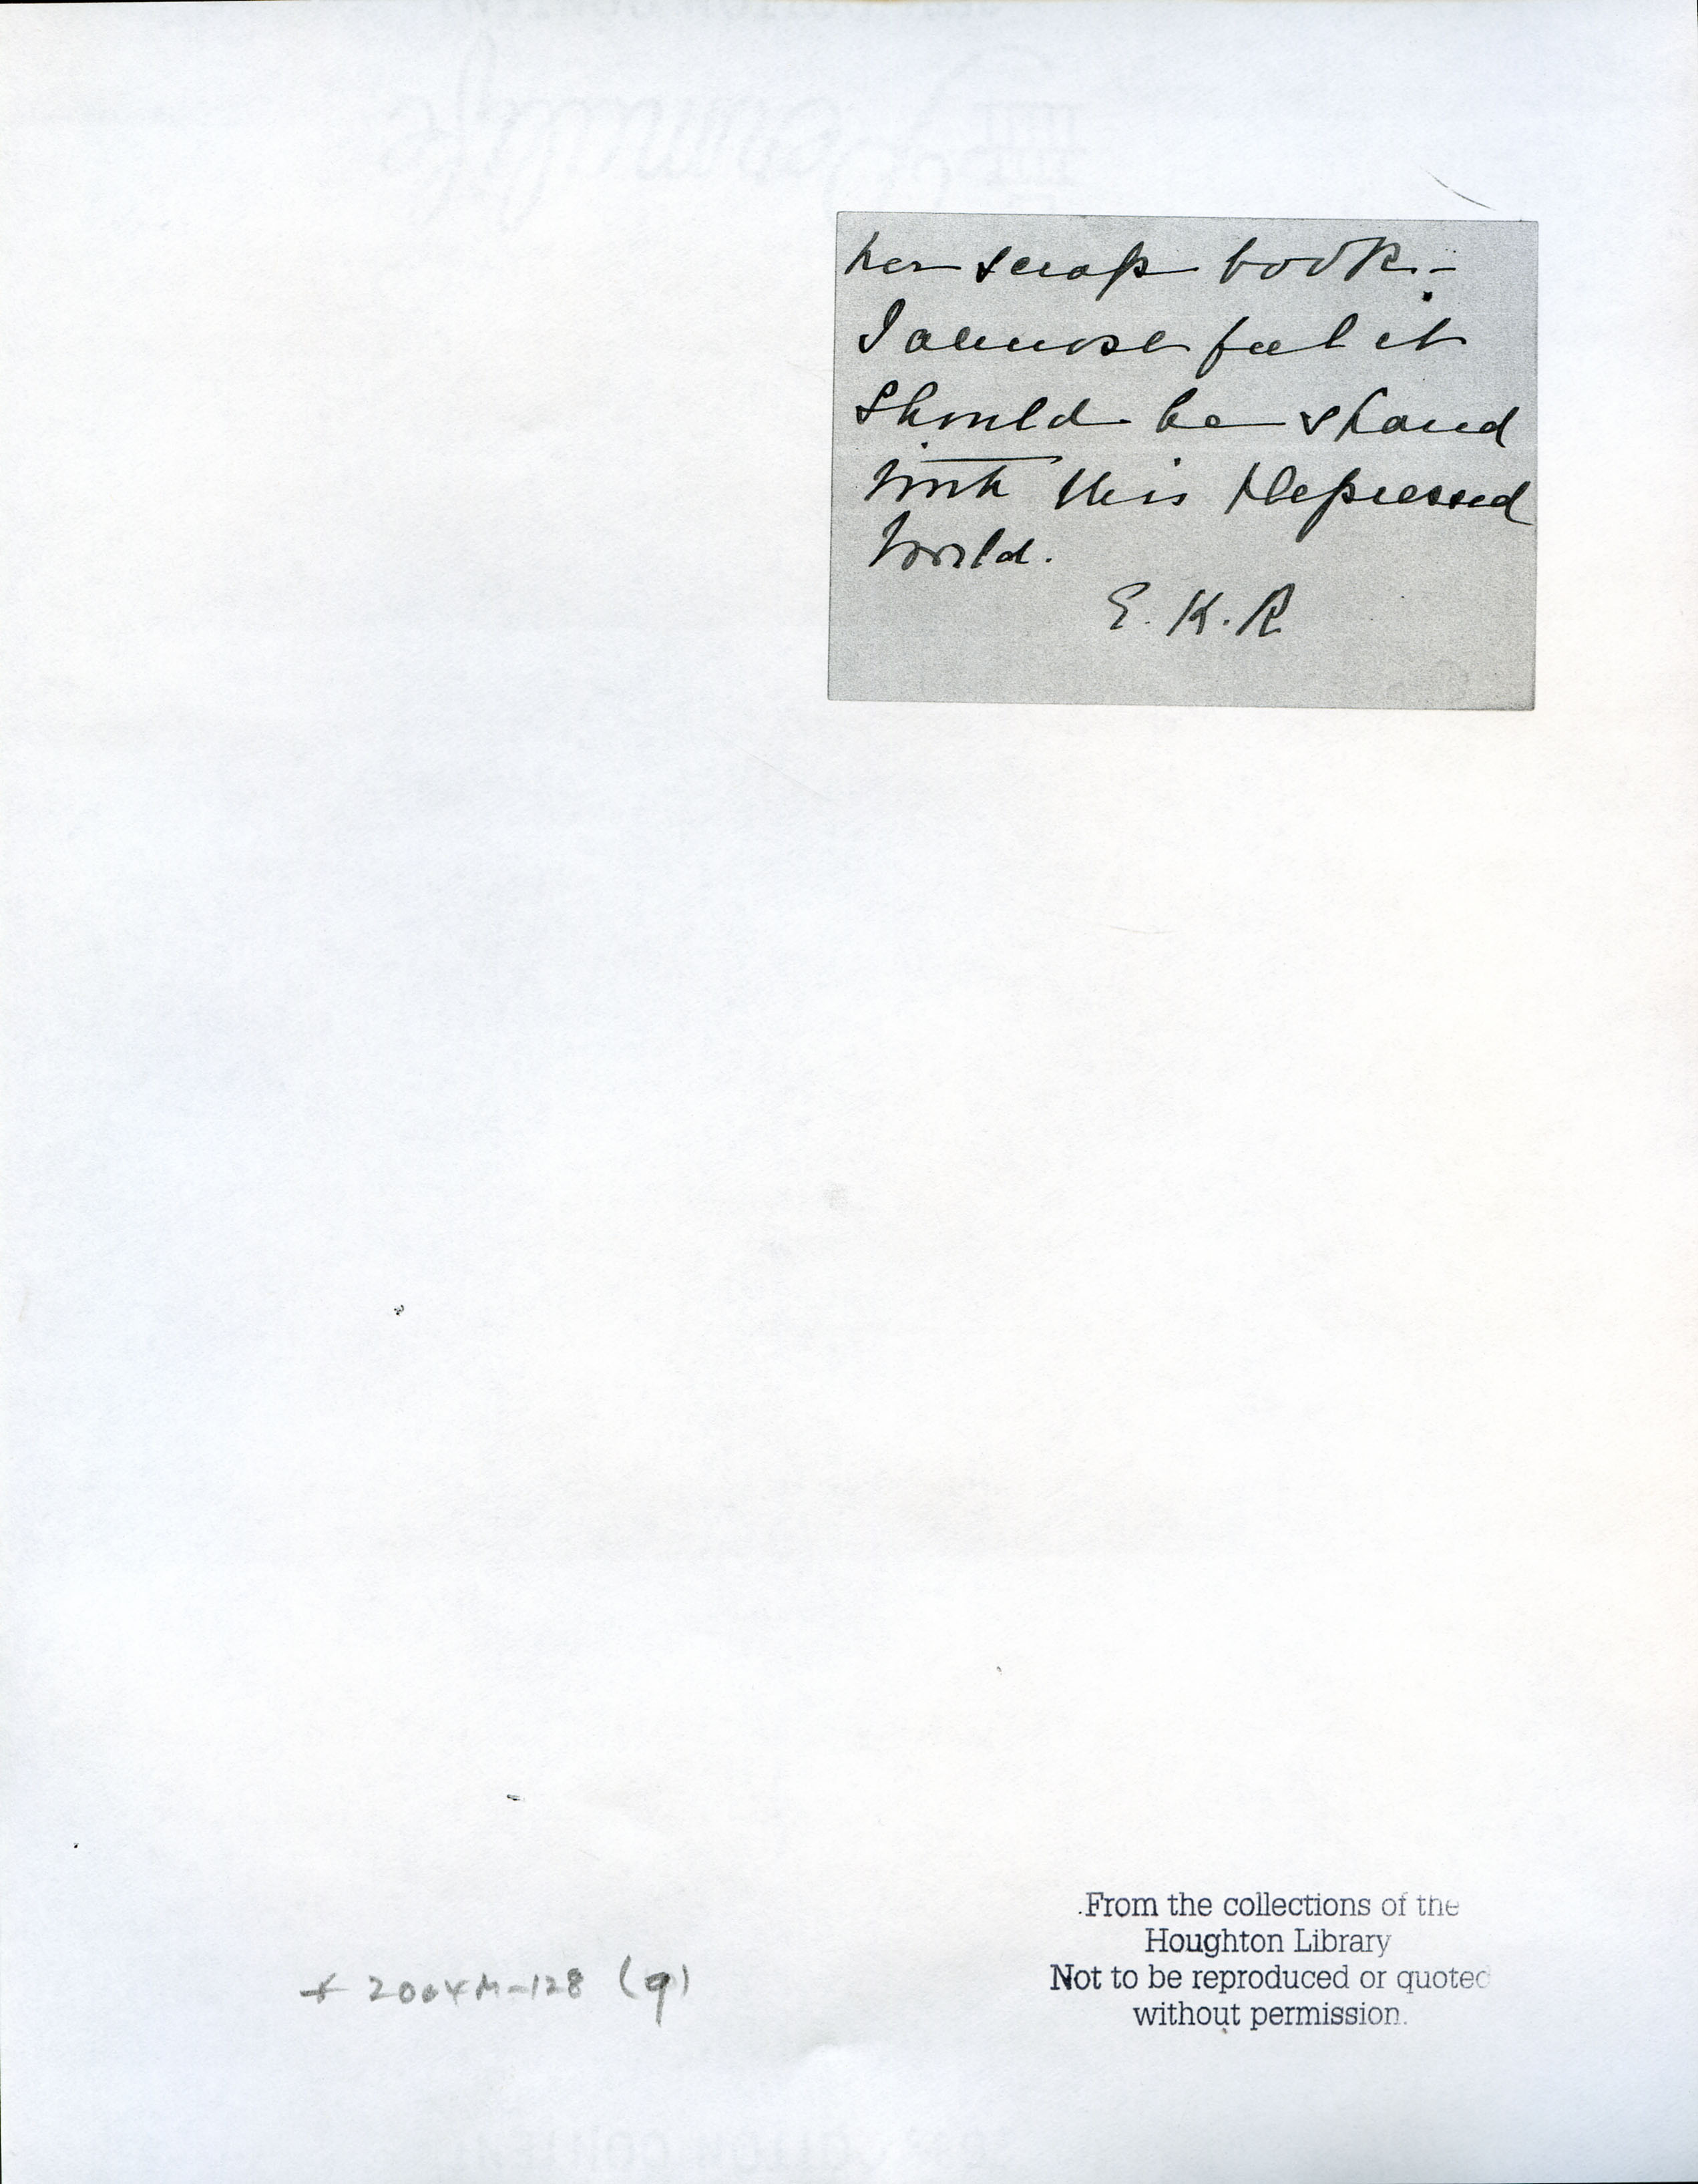 her scrap book. -
I almost feel it
should be shared
with this depressed
world.
E. K. R
* 2004M-128 (9)
From the collections of the
Houghton Library
Not to be reproduced or quoted
without permission.